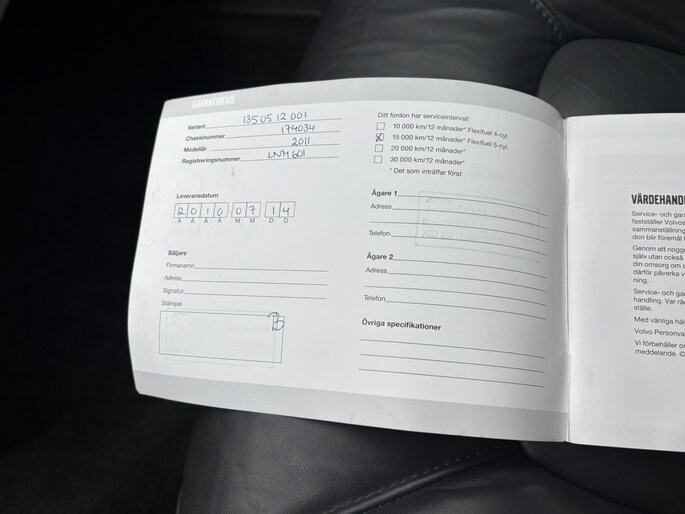 GARANTIBEVIS
Variant 135 05 12 001
Chassinummer 174034
Modellår 2011
Registreringsnummer LNM 601
Leveransdatum
2 0 1 0 0 7 1 4
Å Å Å Å M M D D
Säljare
Firmanamn
Adress
Signatur
Stämpel
Ditt fordon har serviceintervall:
10 000 km/12 månader* Flexifuel 4-cyl.
X 15 000 km/12 månader* Flexifuel 5-cyl.
20 000 km/12 månader*
30 000 km/12 månader*
* Det som inträffar först
Ägare 1
Adress
Telefon
Ägare 2
Adress
Telefon
Övriga specifikationer
VÄRDEHAND
Service- och gara
fastställer Volvos
sammanställning
don blir föremål f
Genom att noggr
själv utan också
din omsorg om d
därför påverka v
ning.
Service- och gar
handling. Var räd
ställe.
Med vänliga häl
Volvo Personva
Vi förbehåller os
meddelande. ©